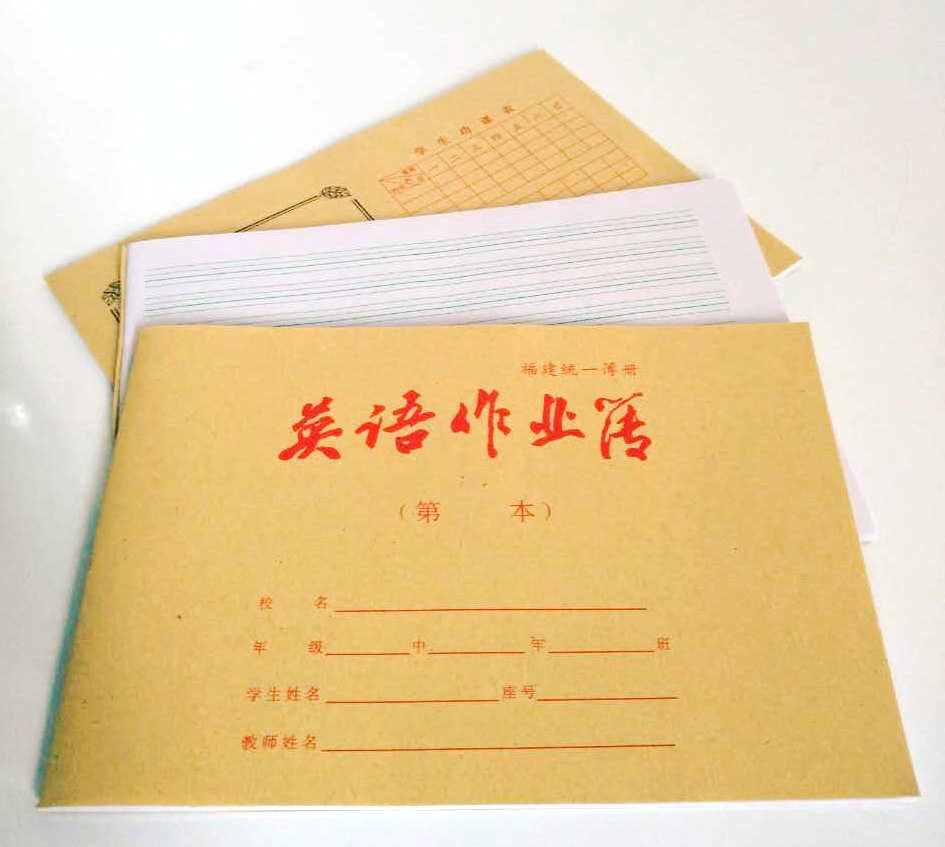 学生功课表
一 二 三 四 五 六 日
福建统一簿册
英语作业簿
（第 本）
校 名
年 级 中 年 班
学生姓名 座号
教师姓名